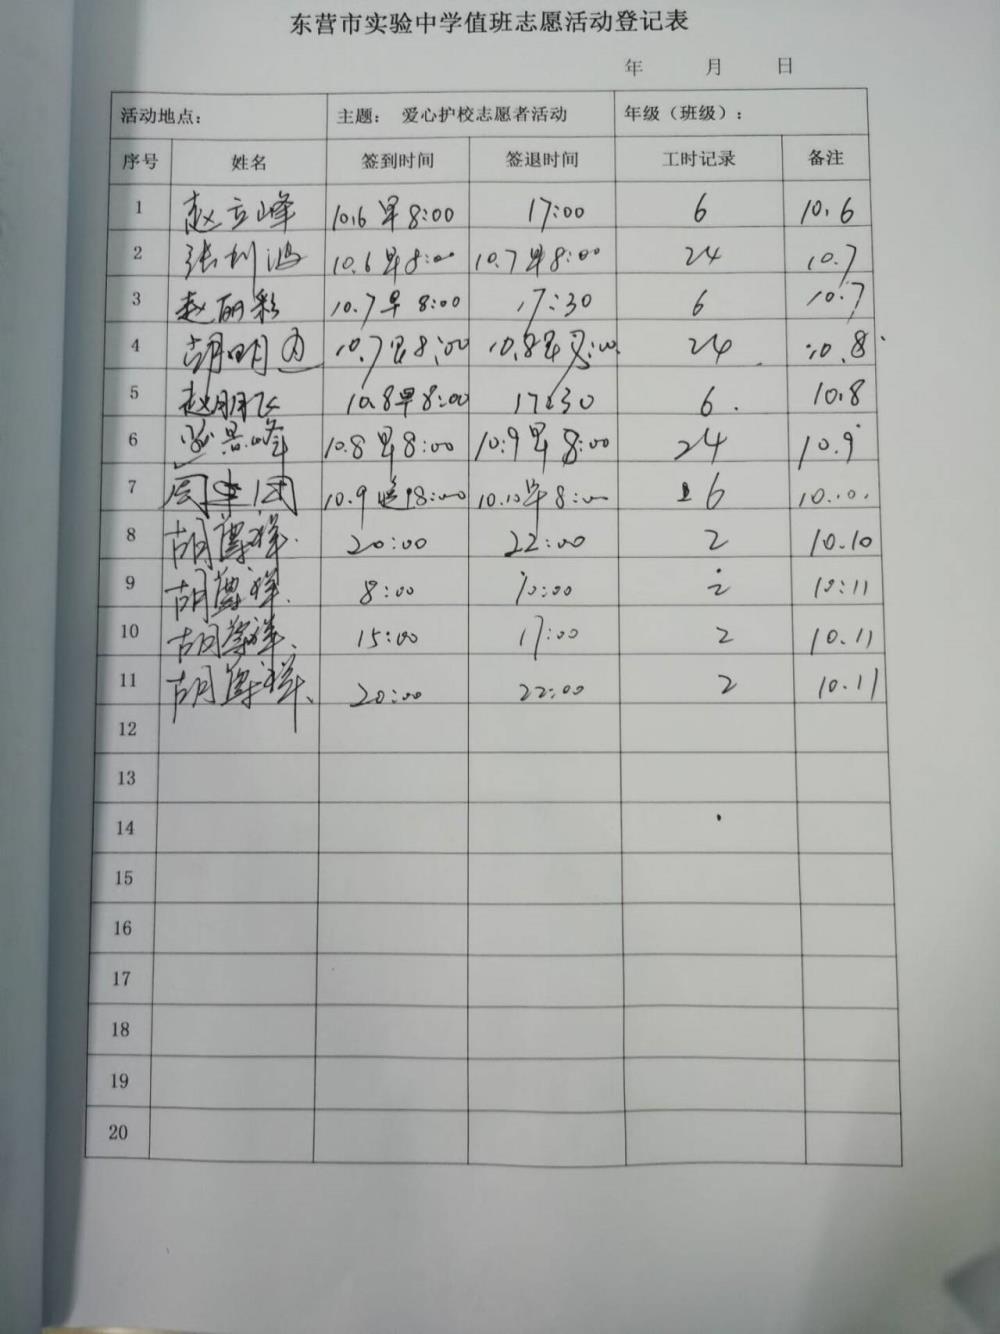 东营市实验中学值班志愿活动登记表
年 月 日
活动地点： 主题： 爱心护校志愿者活动 年级（班级）：
序号 姓名 签到时间 签退时间 工时记录 备注
1 赵立峰 10.6早8:00 17:00 6 10.6
2 张利波 10.6早8:00 10.7早8:00 24 10.7
3 赵丽彩 10.7早8:00 17:30 6 10.7
4 胡明 10.7早8:00 10.8早8:00 24 10.8
5 赵鹏飞 10.8早8:00 17:30 6 10.8
6 峰 10.8早8:00 10.9早8:00 24 10.9
7 周 10.9晚18:00 10.10早8:00 6 10.10.
8 胡尊祥 20:00 22:00 2 10.10
9 胡尊祥 8:00 10:00 2 10:11
10 胡尊祥 15:00 17:00 2 10.11
11 胡尊祥 20:00 22:00 2 10.11
12
13
14
15
16
17
18
19
20